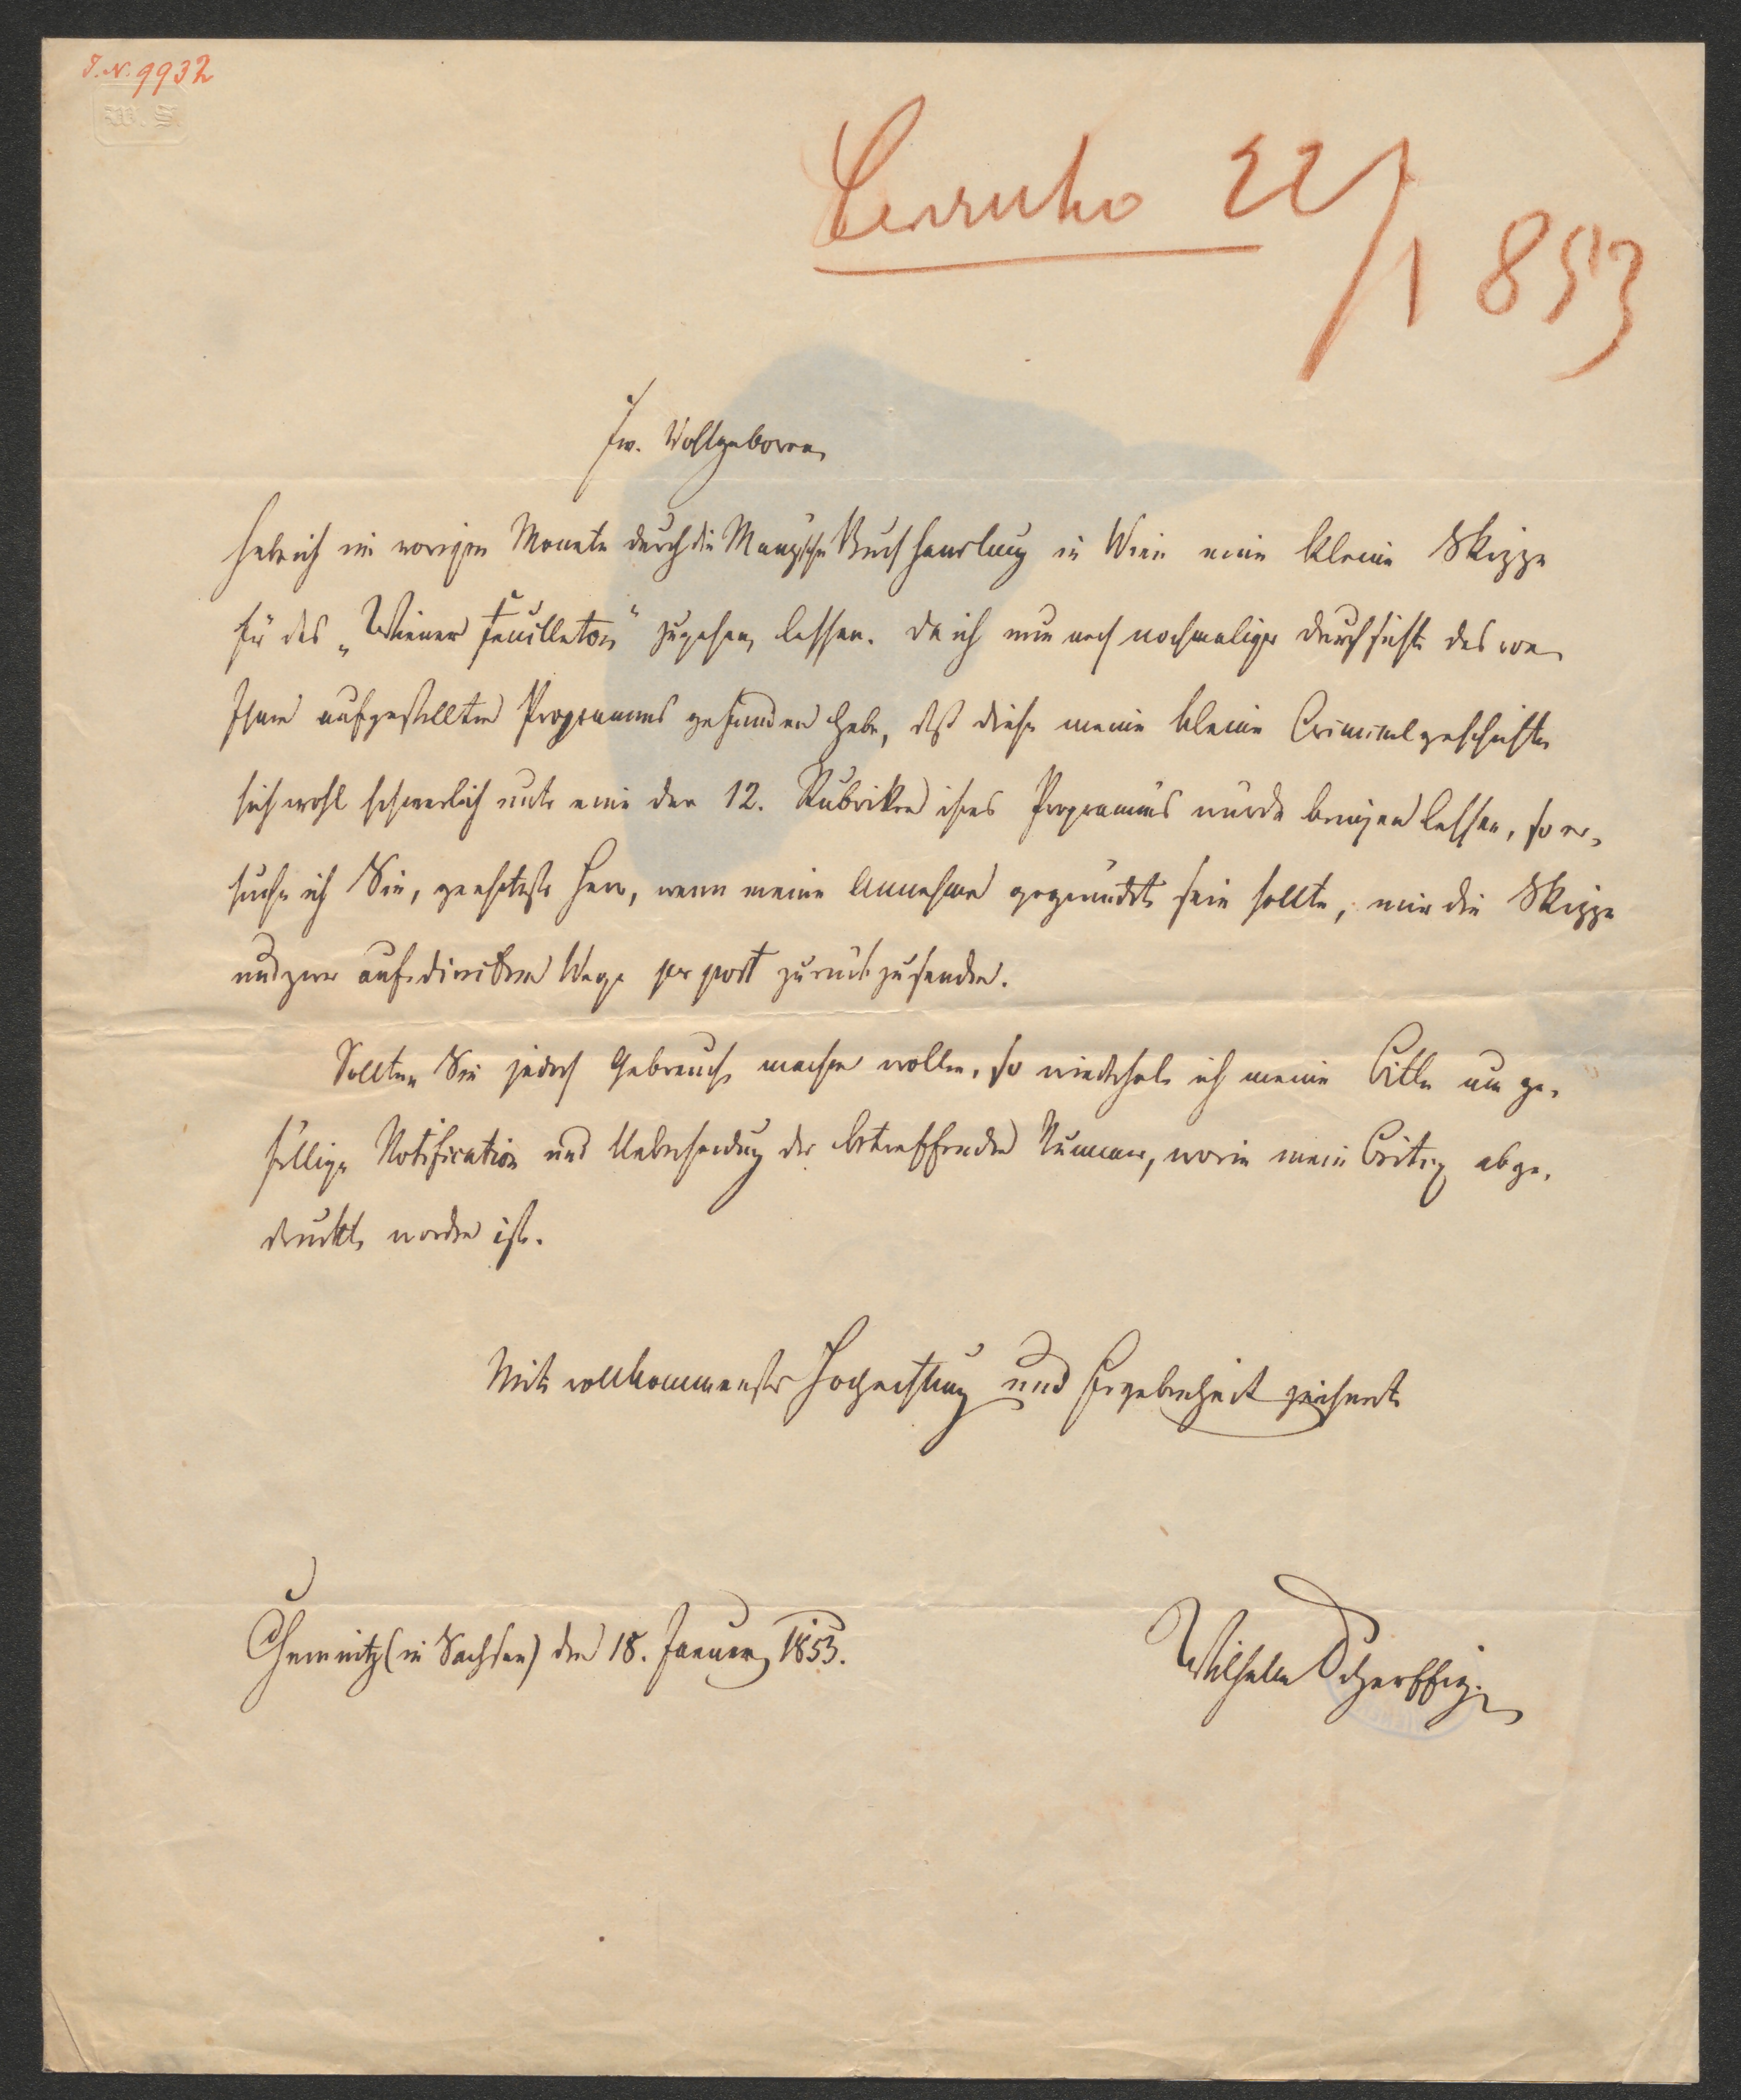 I.N. 9932
W. S.
22/1 853
Ew. Wohlgeboren
habe ich im vorigen Monate durch die Manz'sche Buchhandlung in Wien eine kleine Skizze
für das „Wiener Feuilleton“ zugehen lassen. Da ich nun nach nochmaliger Durchsicht des von
Ihnen aufgestellten Programms gefunden habe, daß diese meine kleine Criminalgeschichte
sich wohl schwerlich unter eine der 12. Rubriken ihres Programms würde bringen lassen, so er-
suche ich Sie, geehrtester Herr, wenn meine Annahme gegründet sein sollte, mir die Skizze
und zwar auf directem Wege per post zurückzusenden.
Sollten Sie jedoch Gebrauch machen wollen, so wiederhole ich meine Bitte um ge-
fällige Notification und Uebersendung der betreffenden Nummer, worin mein Beitrag abge-
druckt worden ist.
Mit vollkommenster Hochachtung und Ergebenheit zeichnet
Chemnitz (in Sachsen) den 18. Januar 1853.
Wilhelm Scherffig.